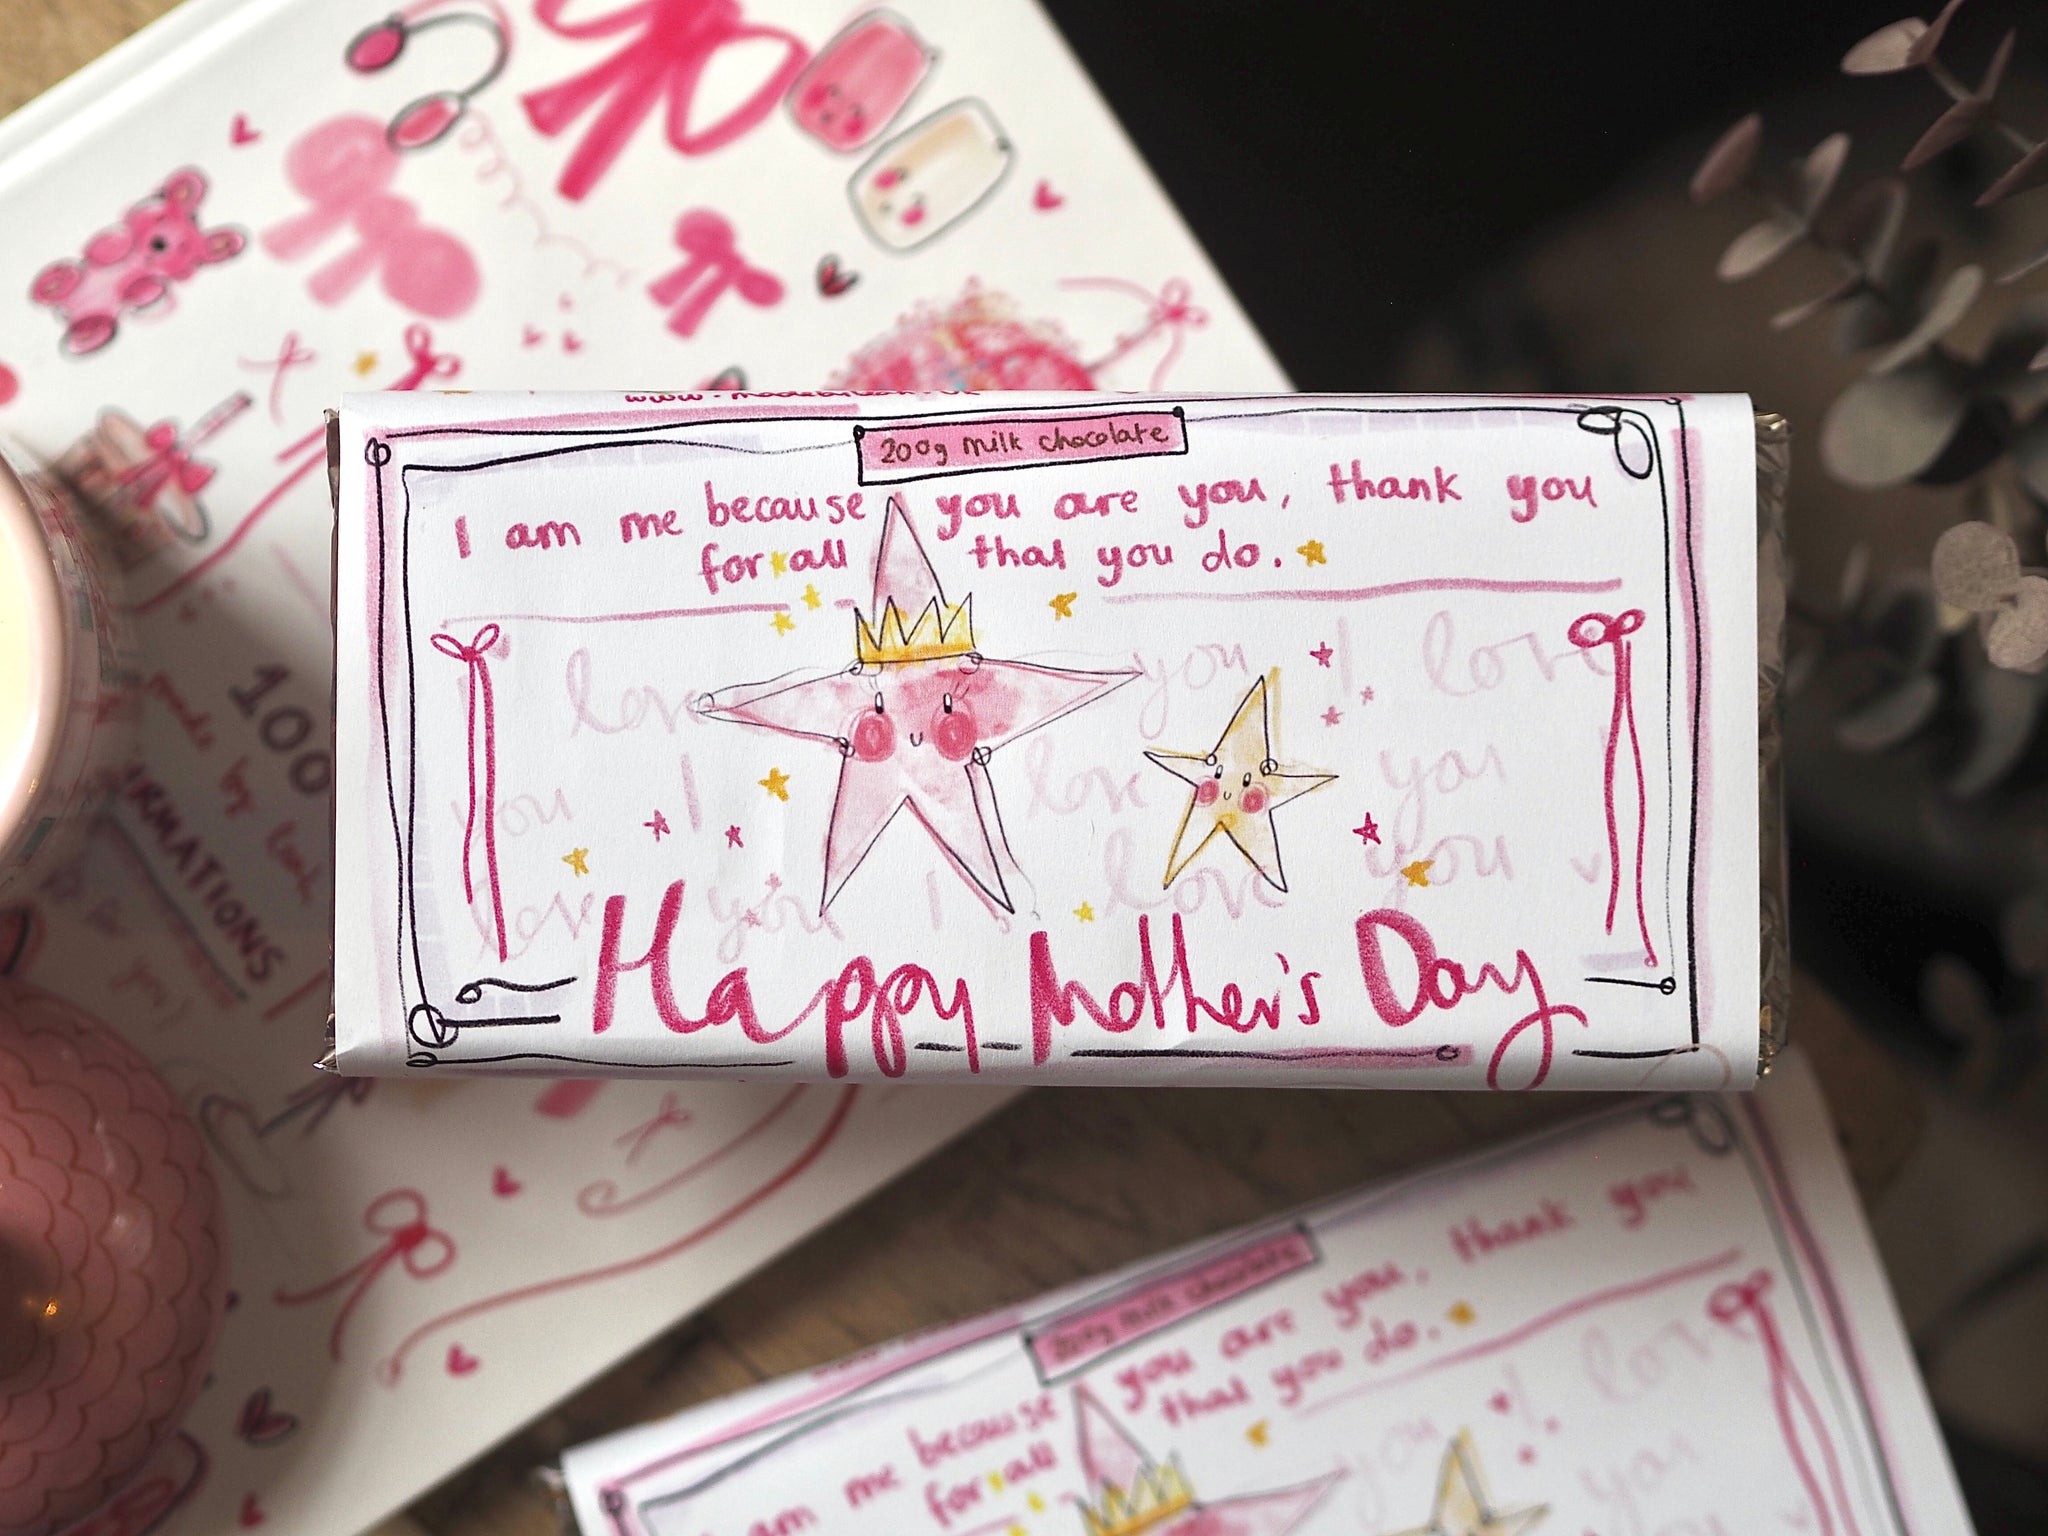 200g milk chocolate
I am me because you are you, thank you
for all that you do.
love you I love
you I love you
love you I love you
Happy Mother's Day
100
made by
AFFIRMATIONS
200g milk chocolate
am me because you are you, thank you
for all that you do.
you I love
you